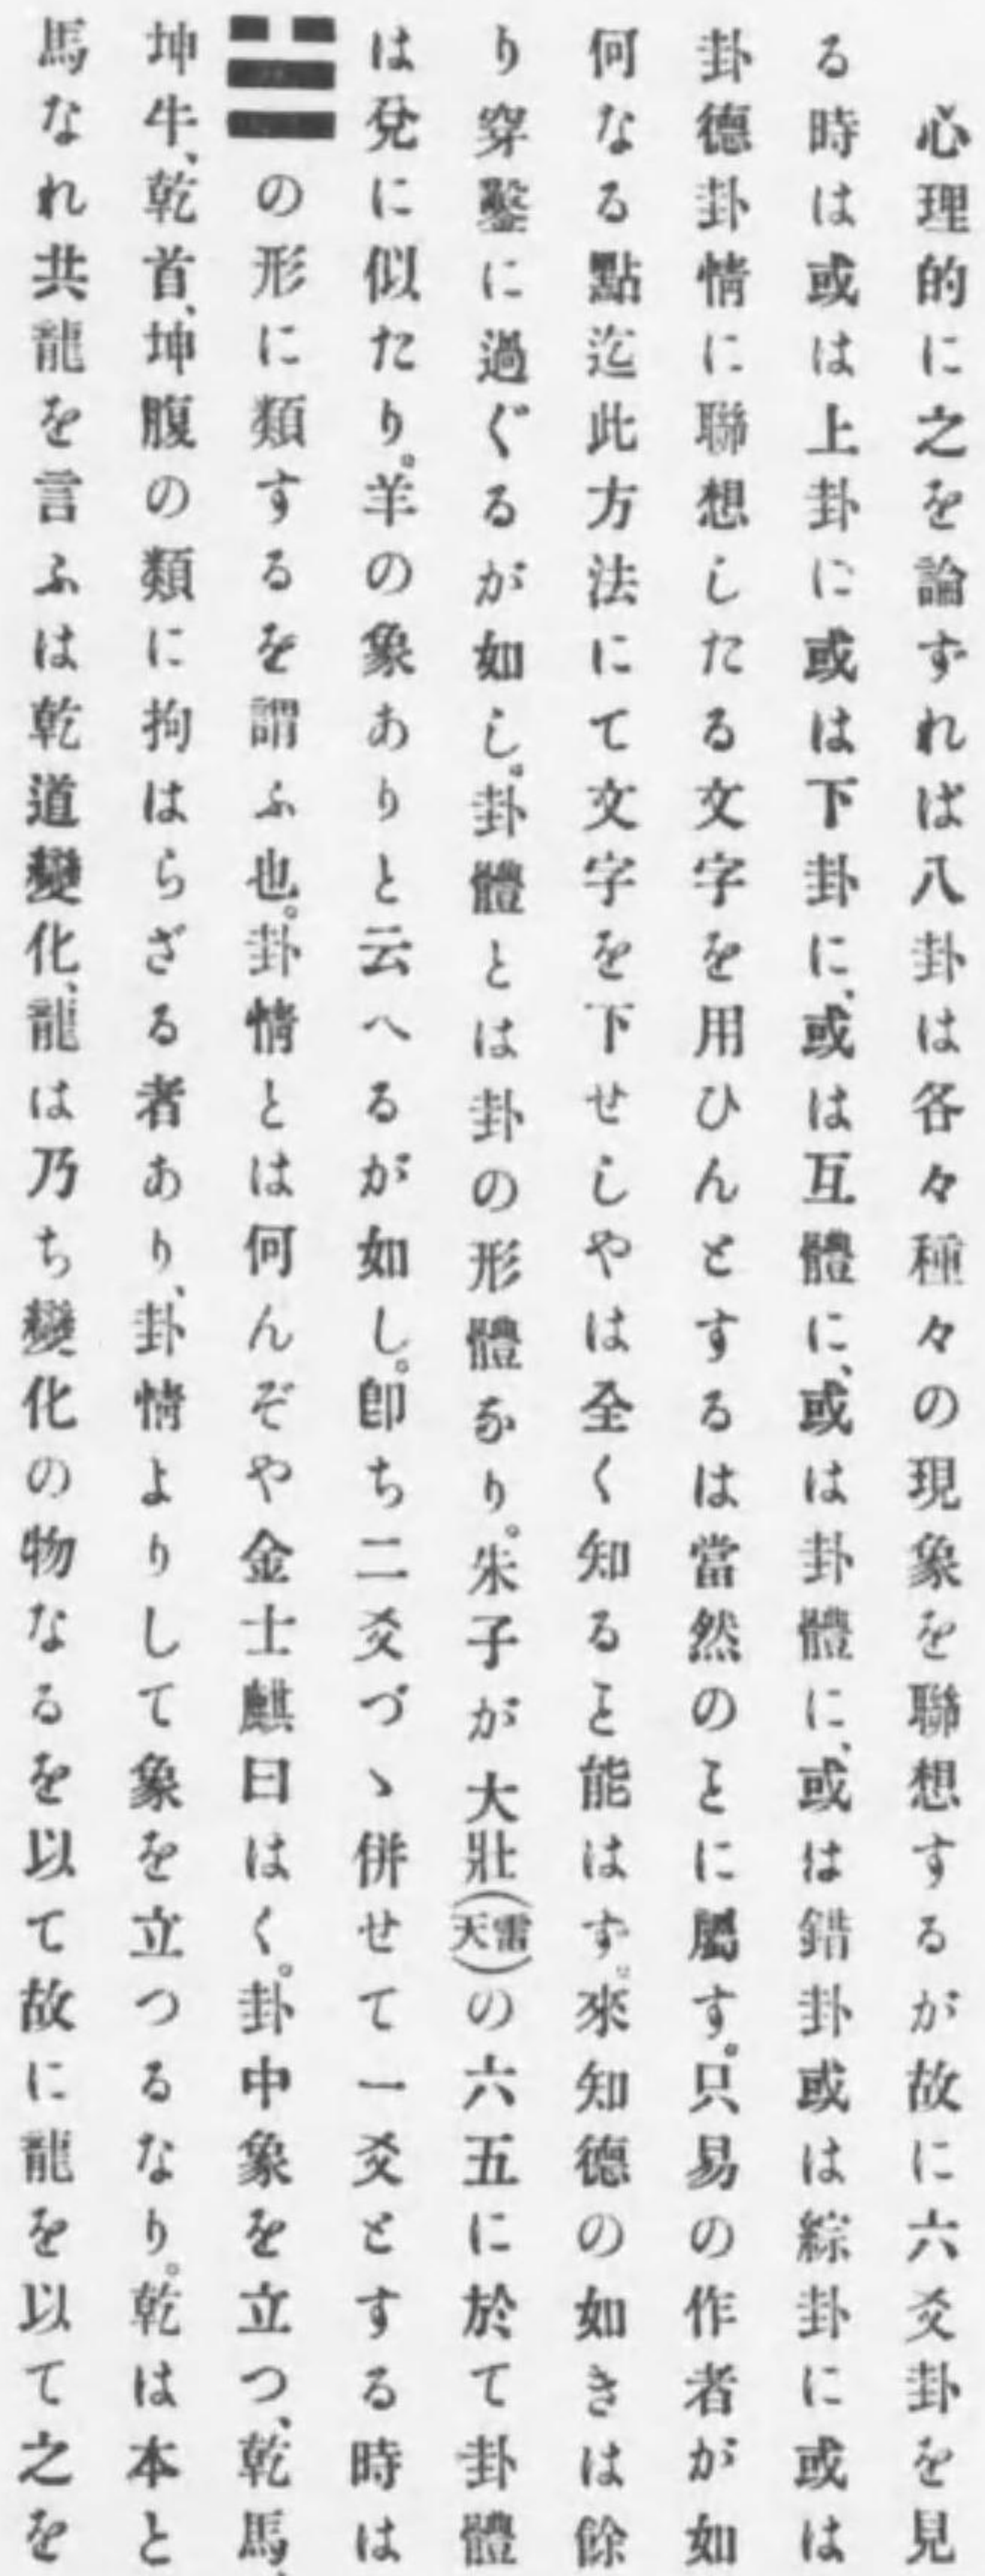 心理的に之を論ずれば八卦は各々種々の現象を聯想するが故に六爻卦を見
る時は或は上卦に或は下卦に、或は互體に、或は卦體に、或は錯卦或は綜卦に或は
卦德卦情に聯想したる文字を用ひんとするは當然のことに屬す。只易の作者が如
何なる點迄此方法にて文字を下せしやは全く知ること能はず。來知德の如きは餘
り穿鑿に過ぐるが如し。卦體とは卦の形體なり。朱子が大壯(雷天)の六五に於て卦體
は兌に似たり。羊の象ありと云へるが如し。卽ち二爻づゝ併せて一爻とする時は
☱の形に類するを謂ふ也。卦情とは何んぞや金士麒曰はく。卦中象を立つ、乾馬、
坤牛、乾首、坤腹の類に拘はらざる者あり、卦情よりして象を立つるなり。乾は本と
馬なれ共龍を言ふは乾道變化、龍は乃ち變化の物なるを以て故に龍を以て之を